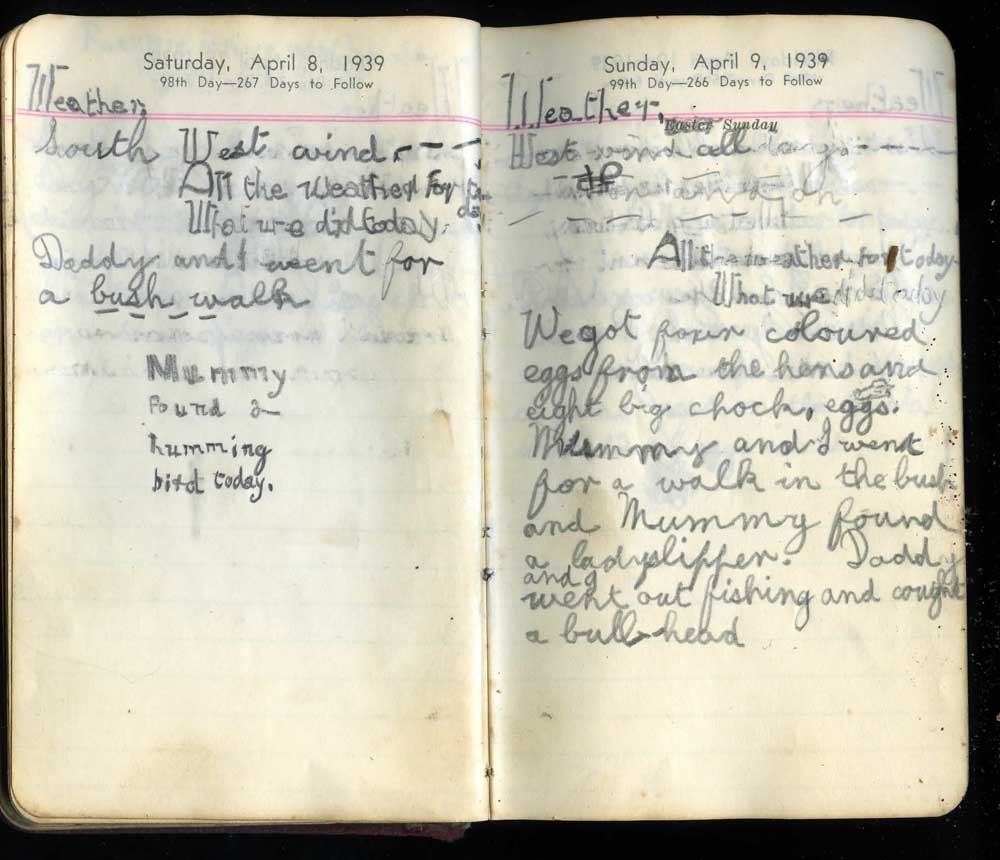 Saturday, April 8, 1939
98th Day—267 Days to Follow
Weather,
South West wind.
All the weather For to
day
What we did today.
Daddy and I went for
a bush walk
Mummy
Found a
humming
bird today.
Sunday, April 9, 1939
99th Day—266 Days to Follow
Weather,
Easter Sunday
West wind all day.
All the weather for today
What we did today
We got four coloured
eggs from the hens and
eight big chock, eggs.
Mummy and I went
for a walk in the bush
and Mummy found
a ladyslipper. Daddy
and I
went out fishing and cought
a bull-head